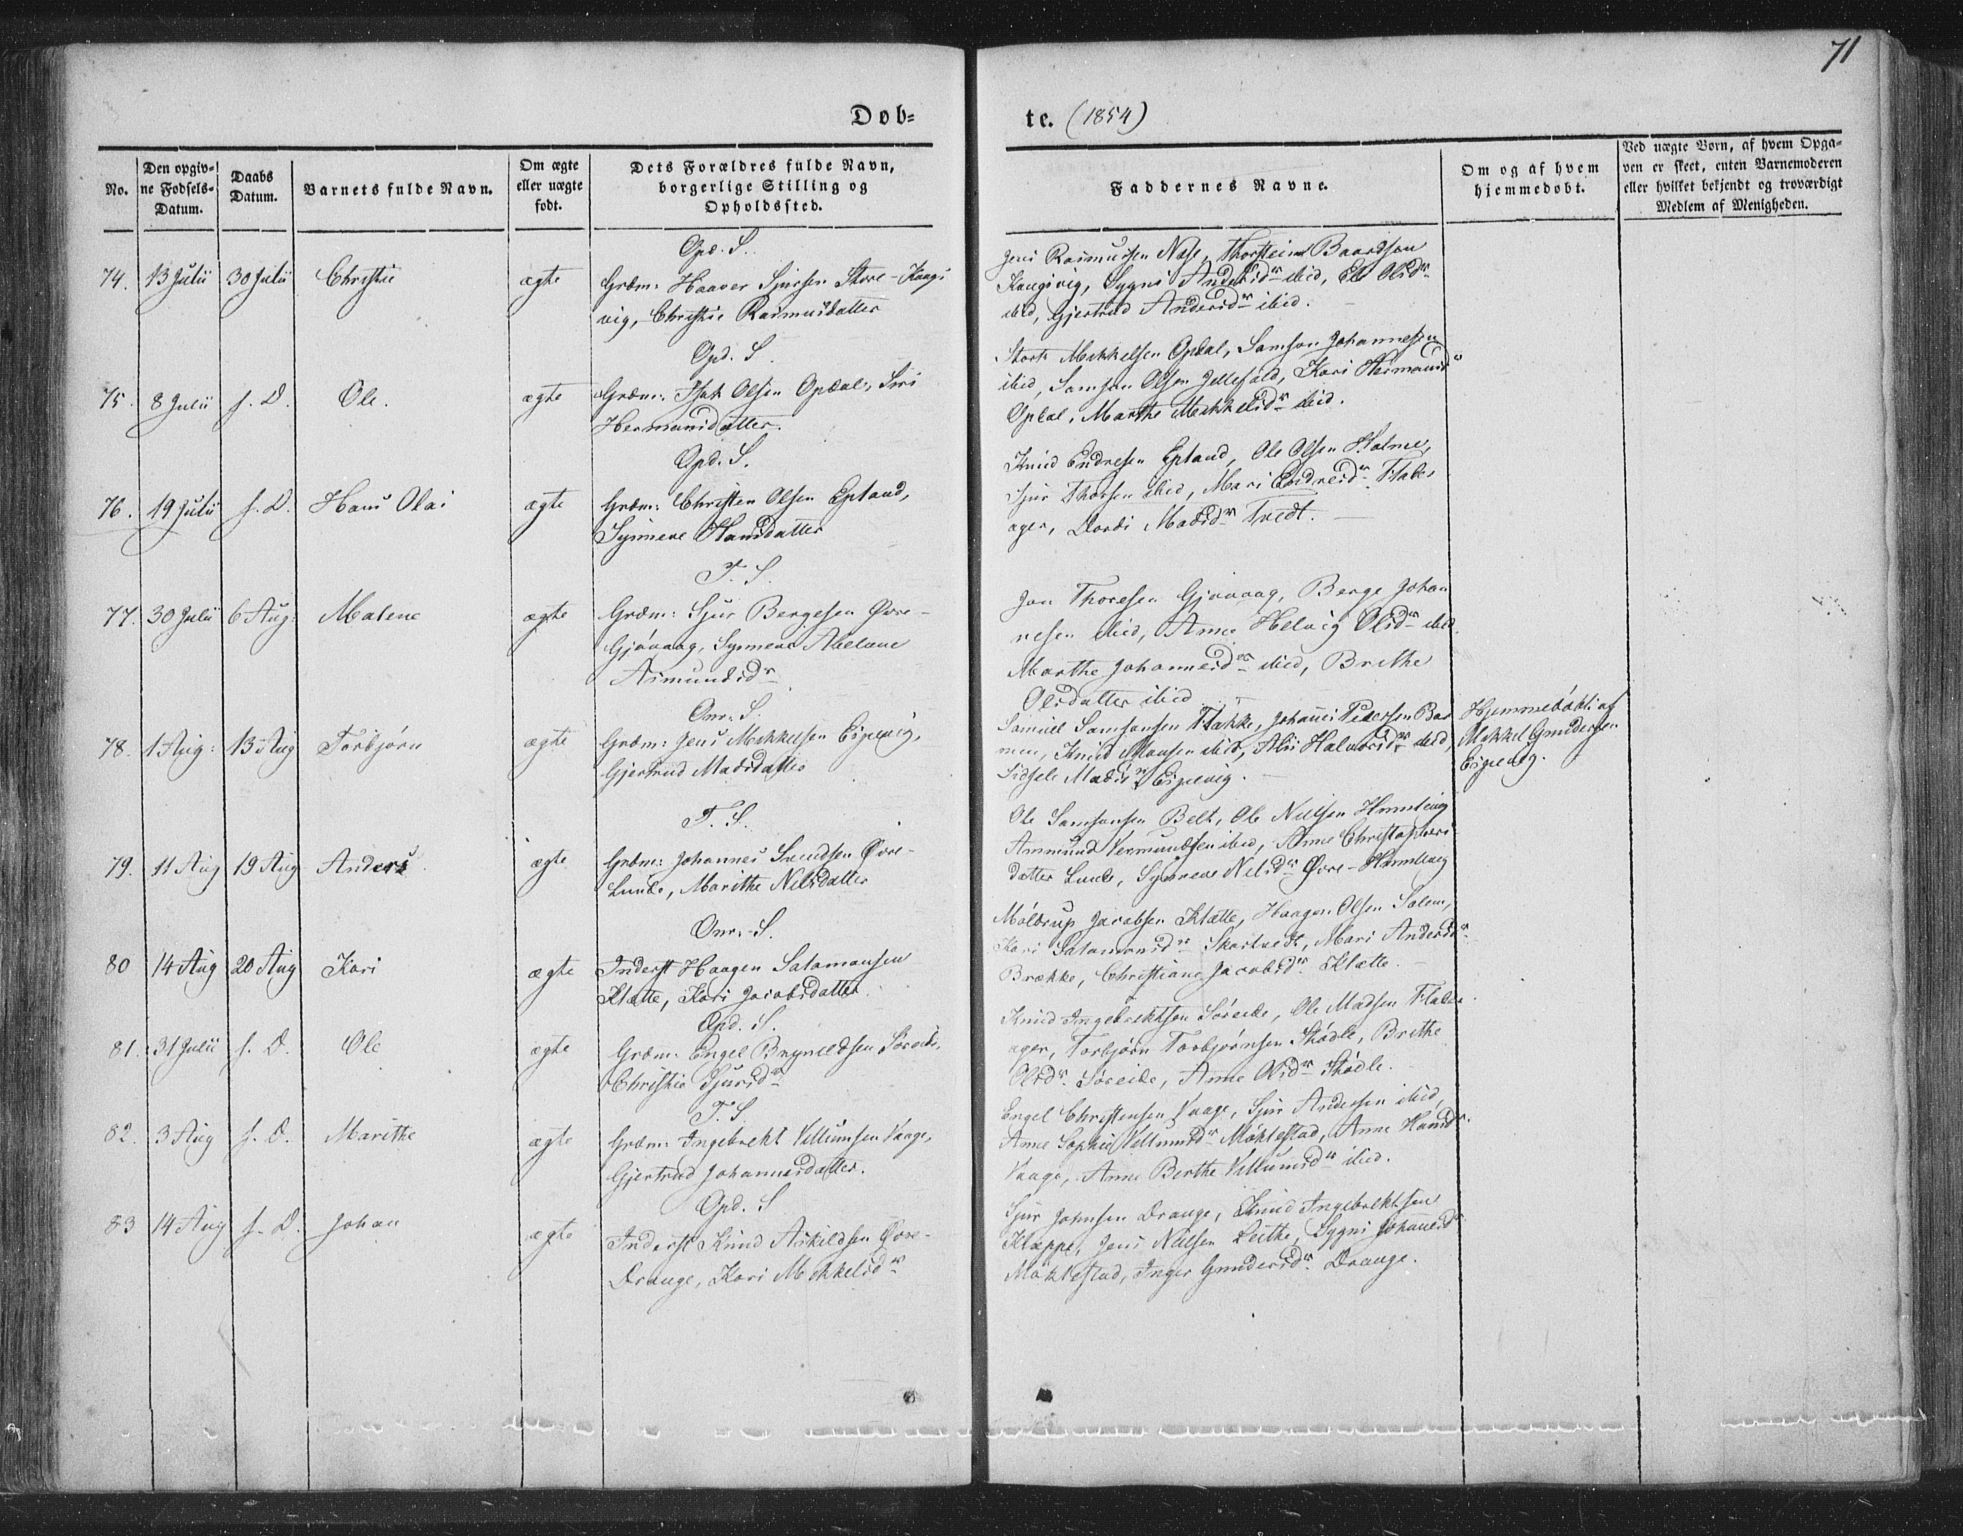 71
Døb-
te. (1854)
No.
Den opgiv-
ne Fødsels-
Datum.
Daabs
Datum.
Barnets fulde Navn.
Om ægte
eller uægte
født.
Dets Forældres fulde Navn,
borgerlige Stilling og
Opholdssted.
Faddernes Navne.
Om og af hvem
hjemmedøbt.
Ved uægte Børn, af hvem Opga-
ven er skeet, enten Barnemoderen
eller hvilket bekjendt og troværdigt
Medlem af Menigheden.
Opd. S.
74. 13 Julii 30 Julii Christie ægte Grdm: Haaver Sjursen Store-Haugs
vig, Christie Rasmusdatter
Jens Rasmussen Næse, Thorsteen Baardsen
Haugsvig, Sygni Andersdr ibid, Eli Olsdr
ibid, Gjertrud Andersdr ibid.
Opd. S.
75. 8 Julii s. D. Ole. ægte Grdm: Isak Olsen Opdal, Siri
Hermundsdatter.
Mikkelsen Opdal, Samson Johannessen
ibid, Samson Olsen Jellefald, Kari Hermundsdr
Opdal, Marthe Mikkelsdr ibid.
Opd. S.
76. 19 Julii s. D. Hans Olai ægte Grdm: Christen Olsen Epland,
Synneve Hansdatter
Knud Endresen Epland, Ole Olsen Holme,
Sjur Thorsen ibid, Mari Endresdr Flake-
ager, Dordi Madsdr Tvedt.
T. S.
77. 30 Julii 6 Aug: Malene ægte Grdm: Sjur Bergesen Øvre-
Gjøvaag, Synneve Abelone
Asmundsdr
Jon Thoresen Gjøvaag, Berge Johan
nesen ibid, Anne Helvig Olsdr ibid.
Marthe Johannesdr ibid, Brithe
Olsdatter ibid
Onr. S.
78. 1 Aug: 13 Aug Torbjørn ægte Grdm: Jens Mikkelsen Espevig,
Gjertrud Madsdatter
Samuel Samsonsen Flakke, Johannes Pedersen Bar
men, Knud Monsen ibid, Alis Halvorsdr ibid,
Sidsele Madsdr Espevig.
Hjemmedøbt af
Mikkel Gundersen
Espevig.
T. S.
79. 11 Aug 19 Aug Anders ægte Grdm: Johannes Svendsen Øvre-
Lunde, Marithe Nilsdatter
Ole Samsonsen Belt, Ole Nielsen Humlevig
Ammund Vermundsen ibid, Anne Christophers
datter Lunde, Synneve Nilsdr Øvre-Humlevig
Onr. S.
80 14 Aug 20 Aug Kari ægte Inderst Haagen Salamonsen
Klætte, Kari Jacobsdatter
Møldrup Jacobsen Klætte, Haagen Olsen Salem,
Kari Salamonsdr Skartvedt, Mari Andersdr
Brække, Christiane Jacobsdr Klætte.
Opd. S.
81. 31 Julii s. D. Ole ægte Grdm: Engel Brynildsen Søreide,
Christie Sjursdr
Knud Ingebrektsen Søreide, Ole Madsen Flake
ager, Torbjørn Torbjørnsen Stødle, Brithe
Olsdr Søreide, Anne Olsdr Stødle.
T. S.
82. 3 Aug s. D. Marithe ægte Grdm: Ingebrekt Villumsen Vaage,
Gjertrud Johannesdatter.
Engel Christensen Vaage, Sjur Andersen ibid,
Anne Sophie Villumsdr Møklestad, Anne Hansdr
Vaage, Anne Berthe Villumsdr ibid.
Opd. S
83 14 Aug s. D. Johan ægte Inderst Knud Askildsen Øvre-
Drange, Kari Mikkelsdr
Sjur Johnsen Drange, Knud Ingebrektsen
Kleppe, Jens Nielsen Leithe, Sygni Johannesdr
Møklestad, Inger Gundersdr Drange.